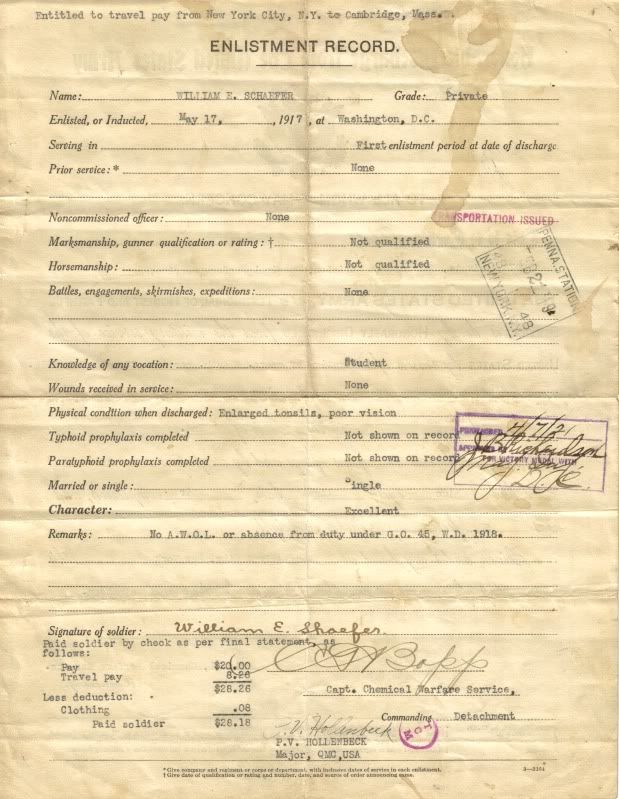 Entitled to travel pay from New York City, N.Y. to Cambridge, Mass.
ENLISTMENT RECORD.
Name: WILLIAM E. SCHAEFER Grade: Private
Enlisted, or Inducted, May 17, , 1917, at Washington, D.C.
Serving in First enlistment period at date of discharge
Prior service: * None
Noncommissioned officer: None
SPORTATION ISSUED
Marksmanship, gunner qualification or rating: † Not qualified
Horsemanship: Not qualified
PENNA. STATION
NEW YORK
Battles, engagements, skirmishes, expeditions: None
Knowledge of any vocation: Student
Wounds received in service: None
Physical condition when discharged: Enlarged tonsils, poor vision
Typhoid prophylaxis completed Not shown on record
Paratyphoid prophylaxis completed Not shown on record
4/7/21
Richardson
FOR VICTORY MEDAL WITH
Married or single: ingle
Character: Excellent
Remarks: No A.W.O.L. or absence from duty under G.O. 45, W.D. 1918.
Signature of soldier: William E. Shaefer.
Paid soldier by check as per final statement, as
follows:
Pay $20.00
Travel pay 8.26
$28.26
Less deduction:
Clothing .08
Paid soldier $28.18
Bopp
Capt. Chemical Warfare Service,
Commanding Detachment
P.V. Hollenbeck
P.V. HOLLENBECK
Major, QMC,USA
*Give company and regiment or corps or department, with inclusive dates of service in each enlistment.
†Give date of qualification or rating and number, date, and source of order announcing same.
3—3164